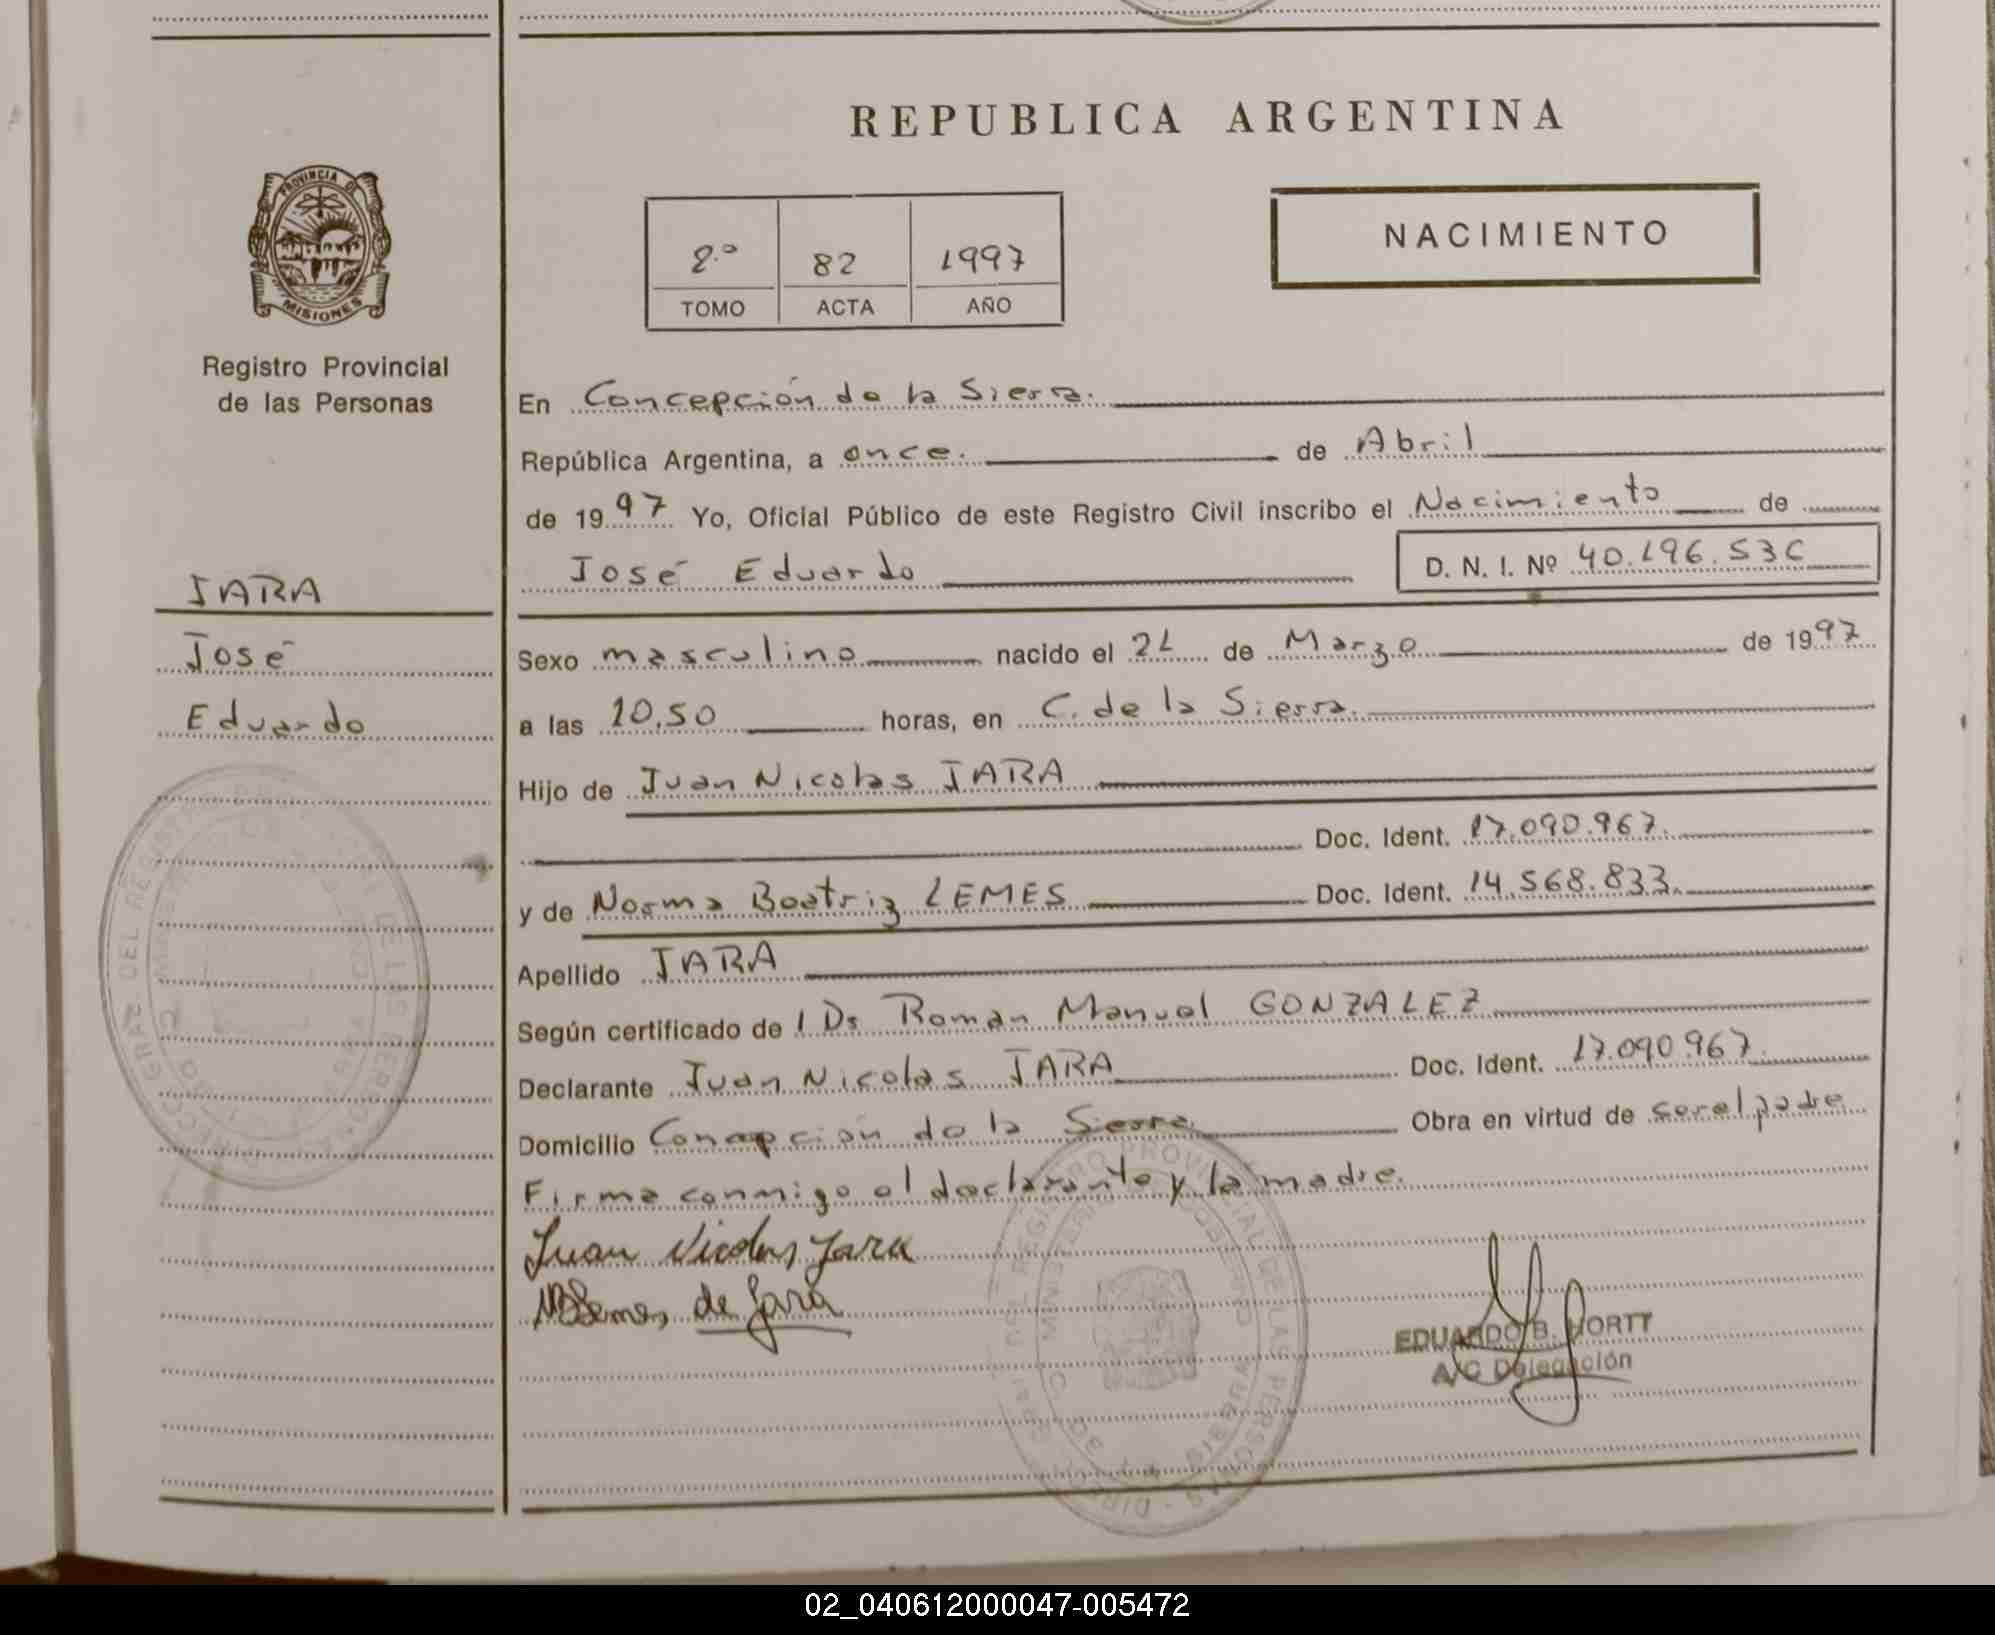 REPUBLICA ARGENTINA
PROVINCIA DE
MISIONES
Registro Provincial
de las Personas
2.º 82 1997
TOMO ACTA AÑO
NACIMIENTO
En Concepción de la Sierra.
República Argentina, a once. de Abril
de 1997 Yo, Oficial Público de este Registro Civil inscribo el Nacimiento de
José Eduardo D. N. I. Nº
JARA
José
Eduardo
Sexo masculino nacido el 21 de Marzo de 1997
a las 10,50 horas, en C. de la Sierra.
Hijo de Juan Nicolas JARA
Doc. Ident. 17.090.967.
y de Norma Beatriz LEMES Doc. Ident. 14.568.833.
Apellido JARA
Según certificado de l Dr Roman Manuel GONZALEZ
Declarante Juan Nicolas JARA Doc. Ident. 17.090.967.
Domicilio Concepción de la Sierra Obra en virtud de ser el padre
Firma conmigo el declarante y la madre.
Juan Nicolas Jara
Lemes de Jara
EDUARDO B. HORTT
A/C Delegación
02_040612000047-005472